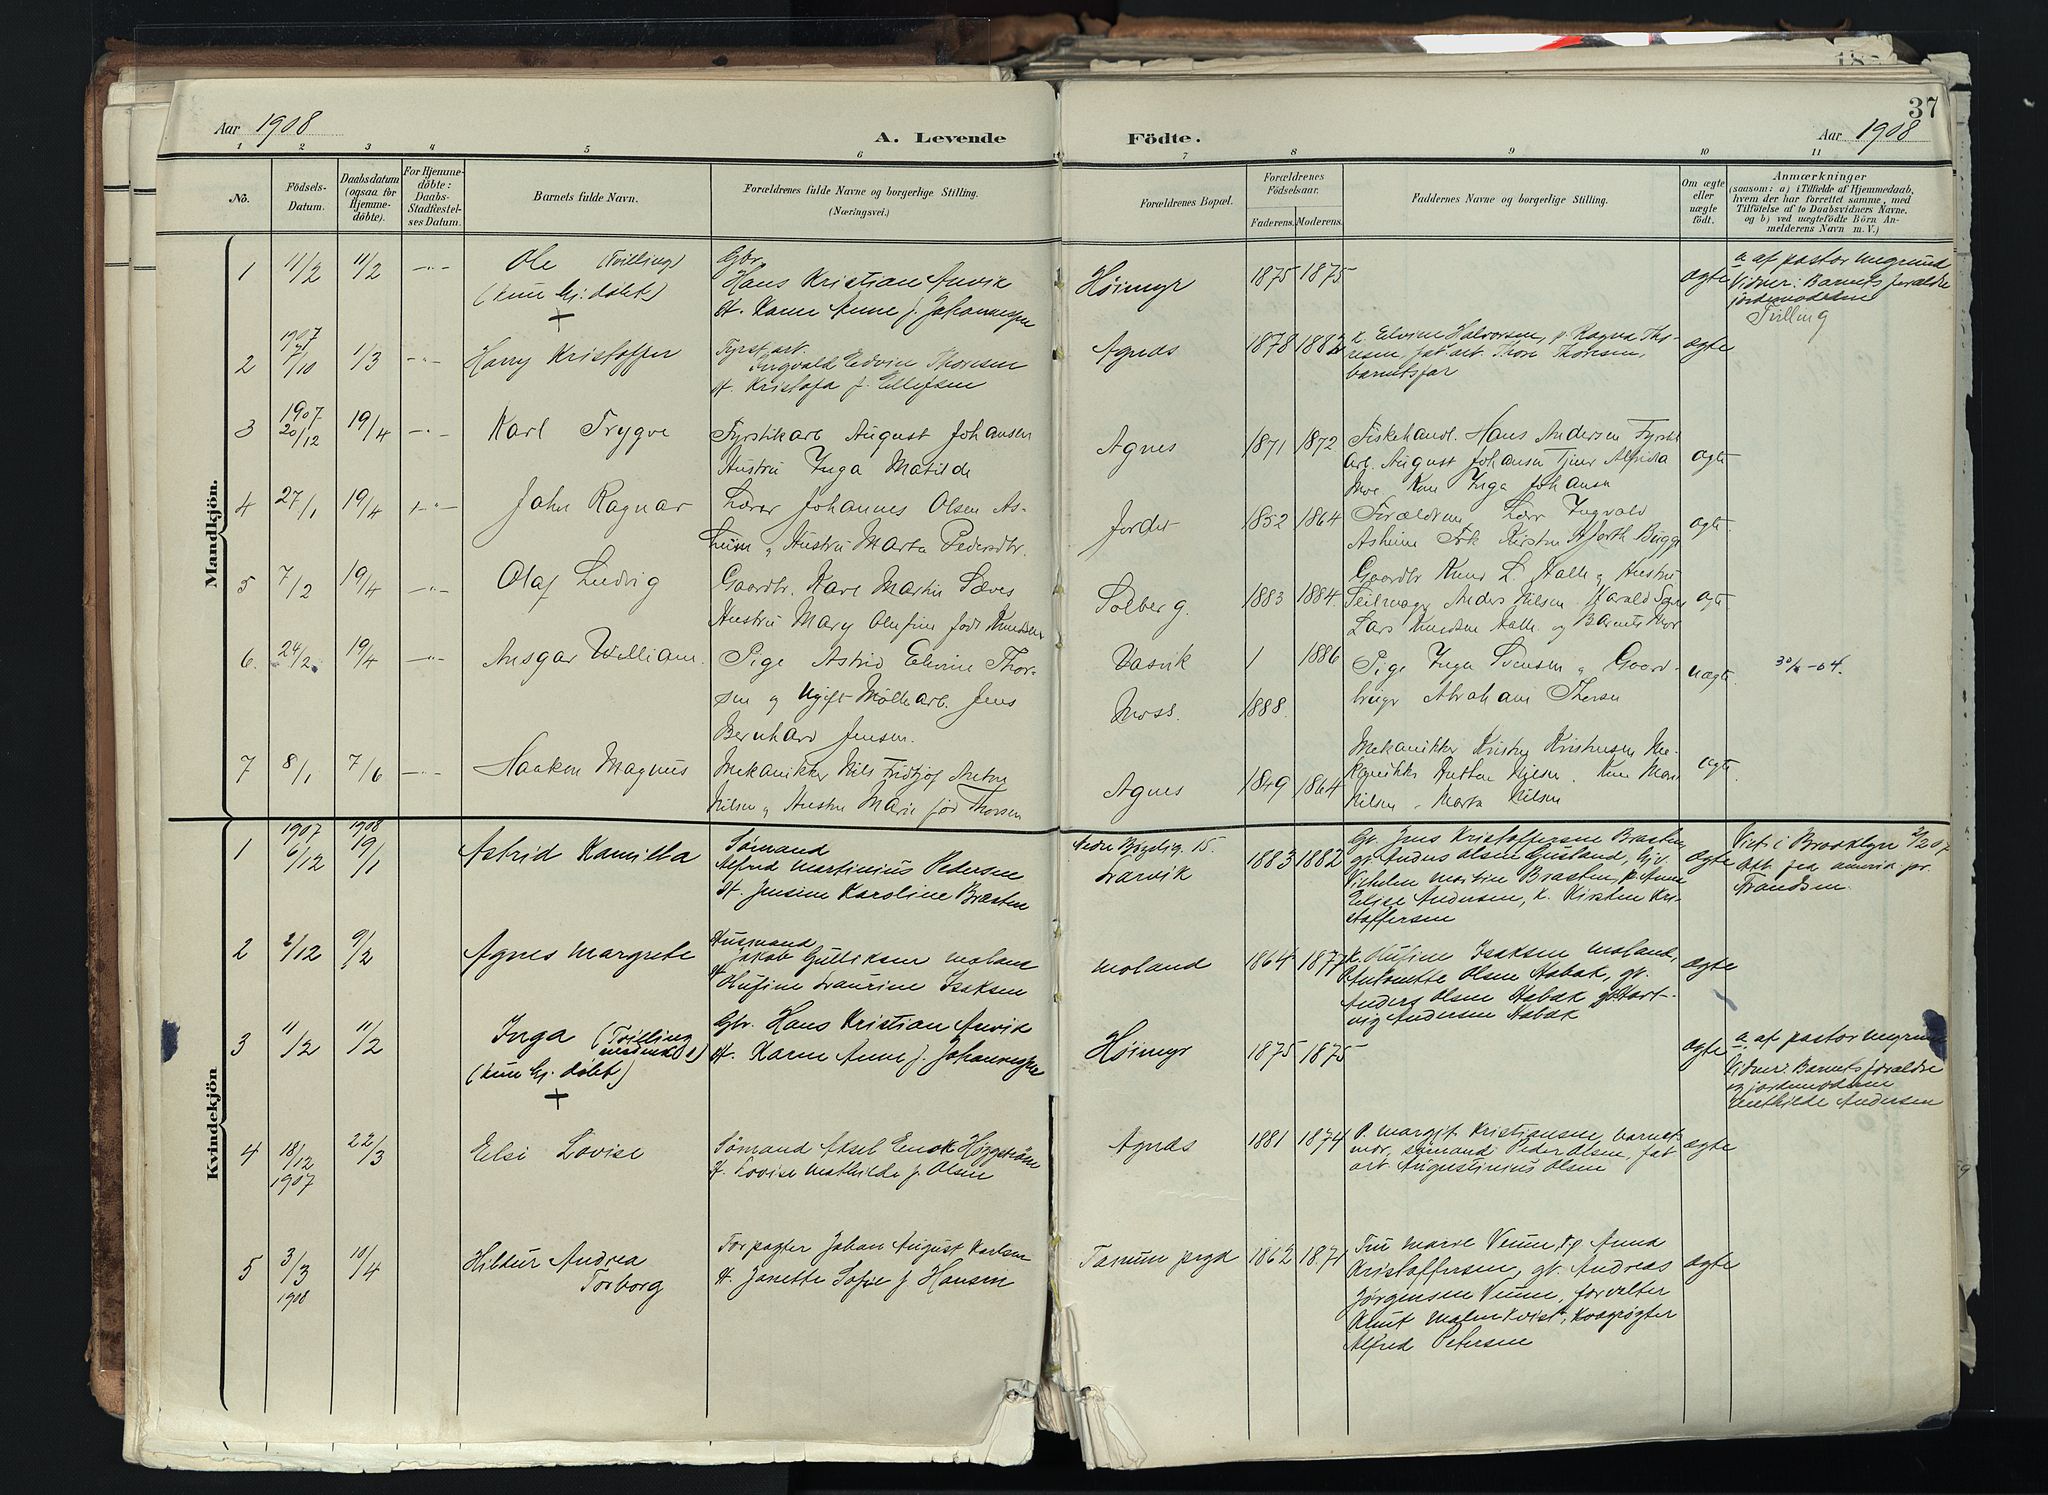 37
Aar 1908
A. Levende Födte.
Aar 1908
1 2 3 4 5 6 7 8 9 10 11
No.
Födsels-
Datum.
Daabsdatum
(ogsaa for
Hjemme-
döbte).
For Hjemme-
döbte:
Daabs-
Stadfæstel-
ses Datum.
Barnets fulde Navn.
Forældrenes fulde Navne og borgerlige Stilling.
(Næringsvei.)
Forældrenes Bopæl.
Forældrenes
Födselsaar.
Faderens. Moderens.
Faddernes Navne og borgerlige Stilling.
Om ægte
eller
uægte
födt.
Anmærkninger
(saasom: a) i Tilfælde af Hjemmedaab,
hvem der har forrettet samme, med
Tilföielse af to Daabsvidners Navne.
og b) ved uægtefödte Börn An-
melderens Navn m. V.)
Mandkjön.
1 11/2 11/2 Ole (Tvilling)
(kun hj. døbt)
+
Gbr.
Hans Kristian Anvik
H. Karen Anne f. Johannesen
Höimyr 1875 1875 ægte
a. af pastor
Vidner: Barnets forældre
jordemoderen
Tvilling
2 1907 /10 1/3 Harry Kristoffer
Fyrst. arb.
Ingvald Edvin Thoresen
H. Kristofa f. Ellefsen
Agnes 1878 1882
k. Elvine Halvorsen, p. Ragna Tho-
resen, fab. arb. Thore Thoresen,
barnets far
ægte
3 1907 20/12 19/4 Karl Trygve
Fyrstikarb August Johansen
Hustru Inga Matilde
Agnes 1871 1872
Fiskehandl. Hans Andersen Fyrst
arb. August Johansen Alfrida
Moe Kone Inga Johansen
ægte
4 27/1 19/4 John Ragnar
Lærer Johannes Olsen As-
heim og Hustru Marta Pedersdtr.
Jordet 1852 1864
Forældrene Lærer Ingvald
Asheim Frk Kirsten Hjorth Brigg
ægte
5 7/2 19/4 Olaf Ludvig
Gaardbr. Karl Martin Sæves
Hustru Mary Olufine født Knudsen
Solberg. 1883 1884.
Gaardbr Knud L. Halle og Hustru
Seilmager Anders Nilsen Harald
Lars Knudsen Halle og Barnets Mor
ægte
6. 24/2 19/4 Ansgar William.
Pige Astrid Elvine Thor-
sen og Ugift Møllearb. Jens
Bernhard Jensen.
Vasvik
Moss. 1888. 1886
Pige Inga Svensen og Gaard-
bruger Abraham
uægte
7 8/1 7/6 Haakon Magnus
Mekanikker Nils Fridtjof Anton
Nilsen og Hustru Marie fød Thorsen
Agnes 1849 1864
Mekanikker Kristensen Me-
kanikker Anton Nilsen. Kone
Nilsen. Marta Nilsen
ægte
Kvindekjön
1 1907 6/12 1908 19/1 Astrid Kamilla
Sømand
Alfred Martinius Pedersen
H. Jensine Karoline Bræsten
15.
Larvik 1883 1882
Gb. Jens Kristoffersen Bræsten,
gb. Anders Olsen
Vilhelm Bræsten, p. Anne
Elise Andersen, k. Kirsten Kri-
stoffersen
ægte
Viet i Brooklyn
Att. fra
Frandsen.
2 2/12 9/2 Agnes Margrete
Husmand
Jakob Gulliksen Moland
H. Rufine Laurine Isaksen
Moland 1864 1877
k. Rufine Isaksen Moland,
Antonette Olsen Habak, gb.
Anders Olsen Habak
vig Andersen Habak
ægte
3 11/2 11/2 Inga (Tvilling
)
(kun hj. døbt)
+
Gbr. Hans Kristian Anvik
H. Karen Anne f. Johannesen
Höimyr 1875 1875 ægte
a. af pastor
Vidner: Barnets forældre
og jordemoderen
Mathilde Andersen
4 18/12 1907 22/3 Elsi Lovise
Sømand Aksel Enok Häggström
H. Lovise Mathilde f. Olsen
Agnes 1881 1874
P. Margit Kristiansen, barnets
mor, sømand Peder Olsen, fab
arb Augustinius Olsen
ægte
5 3/3 1908 10/4 Hildur Andrea
Torborg
Forpagter Johan August Karlsen
H. Janette Sofie f. Hansen
Tanum prgd 1862 1871
Fru Marie Veum, Anna
Kristoffersen, gb. Andreas
Jørgensen Veum, forvalter
Knut Malmkvist,
Alfred Petersen
ægte